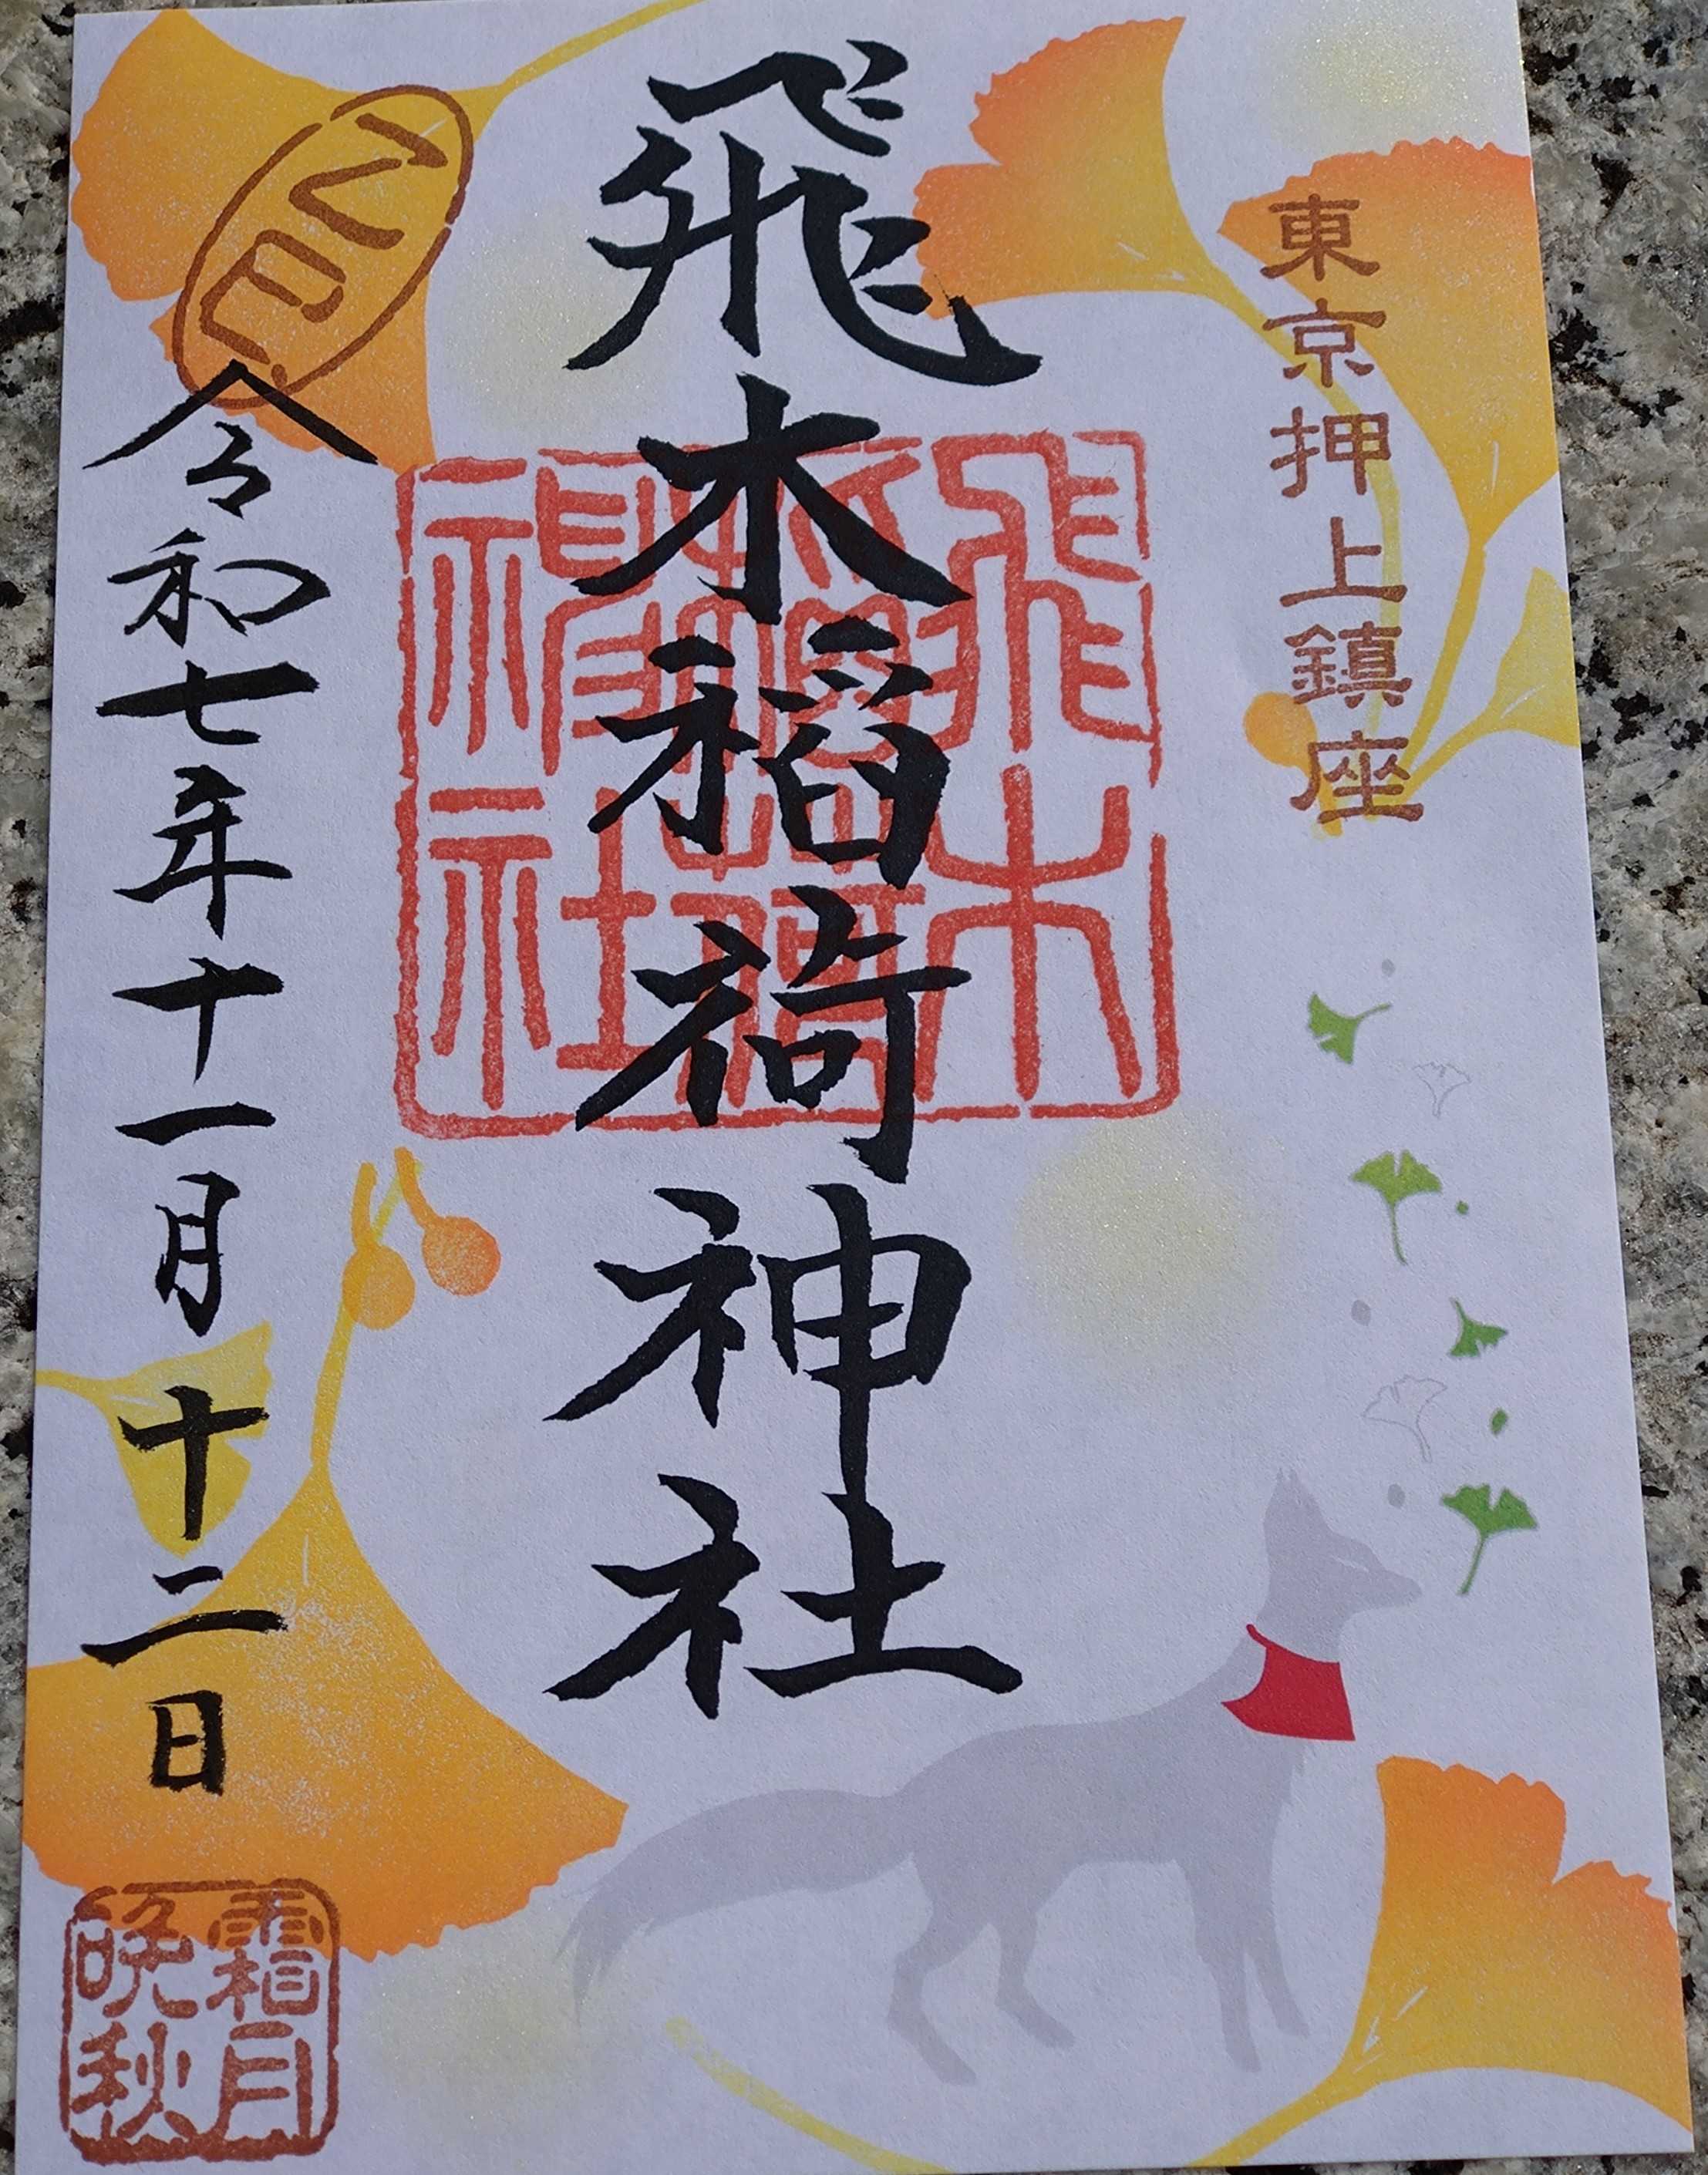 東京押上鎮座
飛木稲荷神社
飛木
稲荷
神社
令和七年十一月十二日
霜月
晩秋